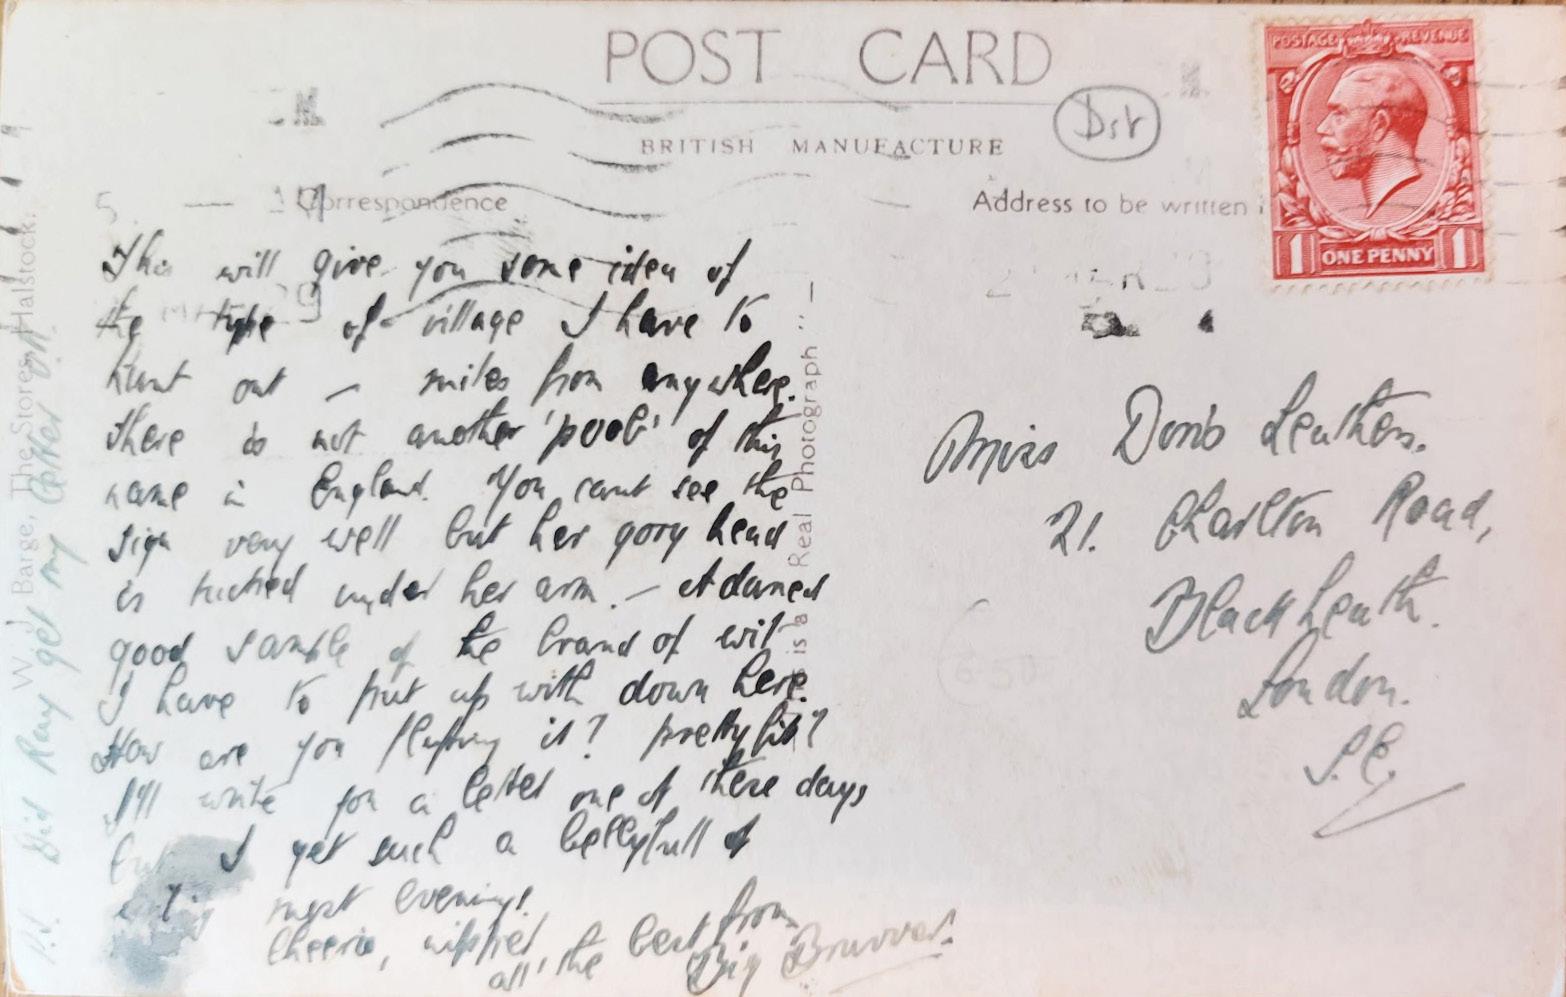 POST CARD
BRITISH MANUFACTURE
Dst
Correspondence
Address to be written
POSTAGE REVENUE
1 ONE PENNY 1
This will give you some idea of
the type of village I have to
hunt out – miles from anywhere.
There is not another 'poob' of this
name in England. You cant see the
sign very well but her gory head
is tucked under her arm. – A darned
good sample of the brand of wit
I have to put up with down here.
How are you playing it? pretty fit?
I'll write you a letter one of these days
but I get such a bellyfull of
most evenings.
Cheerio, all the best from
Big Bruvver.
P.S. Did Ray get my letter
Miss Doris Leathers.
21. Charlton Road,
Blackheath.
London.
S.E.
W. J. Barge, The Stores, Halstock.
This is a Real Photograph